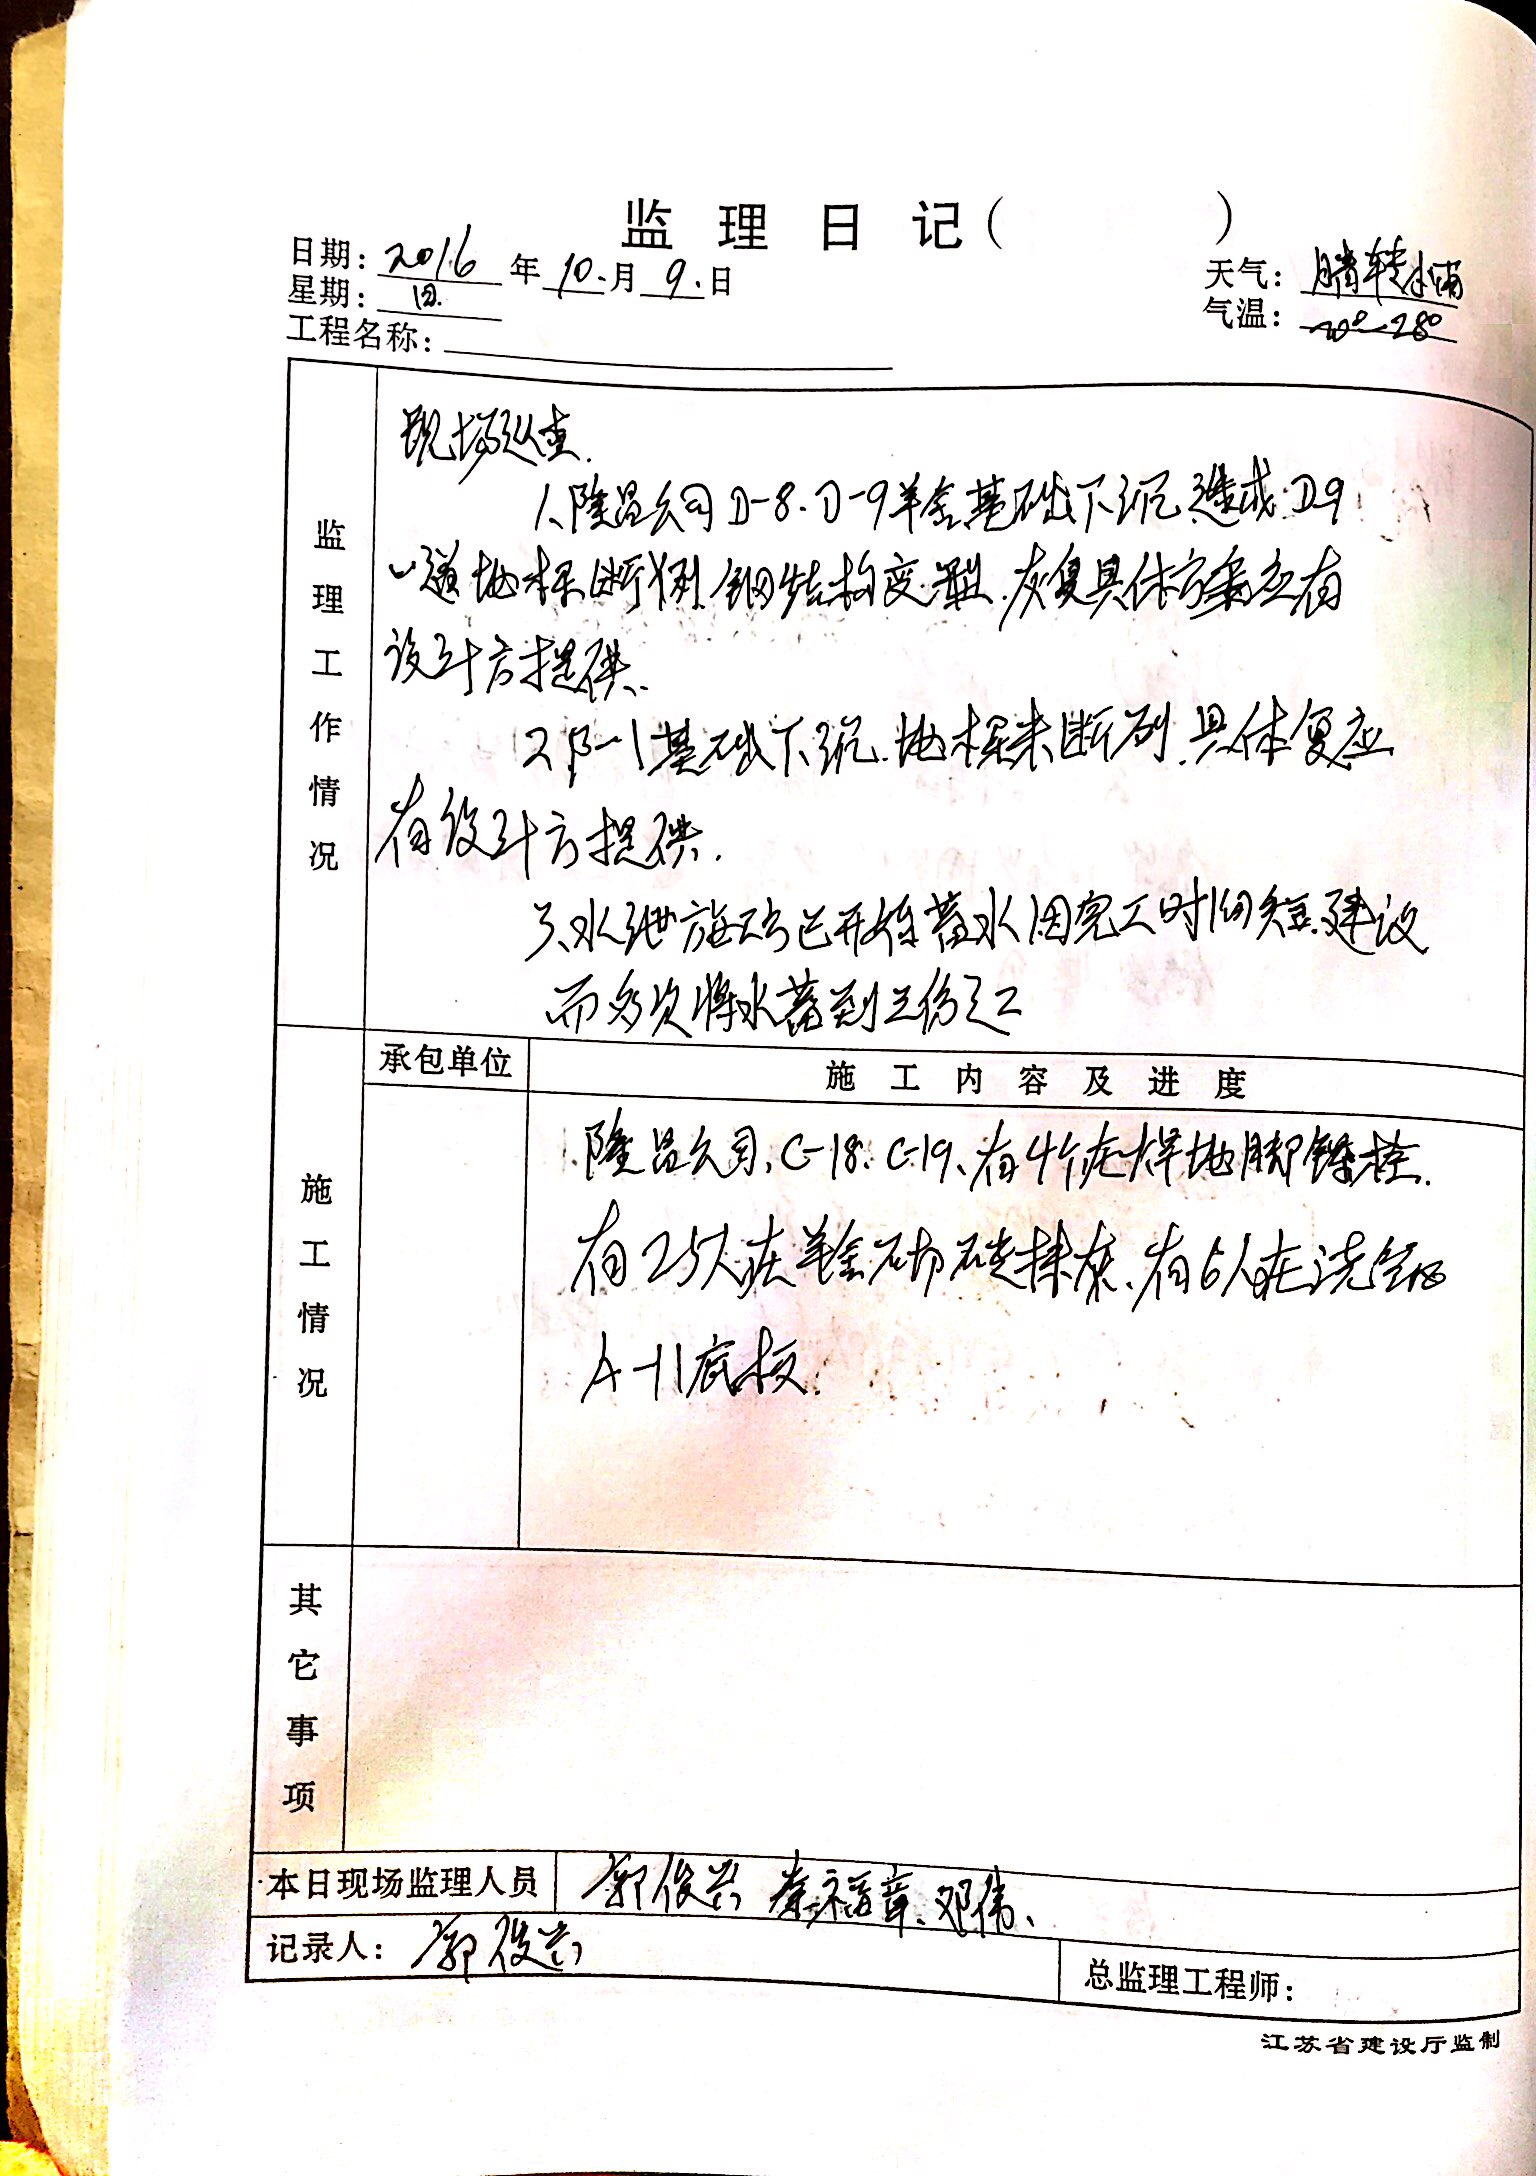 监理日记( )
日期: 2016 年 10 月 9 日
星期: 日
天气: 晴转小雨
气温: 20°-28°
工程名称:
监理工作情况
现场巡查.
1、隆昌公司D-8、D-9羊舍基础下沉造成D9
道地梁断裂钢结构变型.灰复具体方案应有
设计方提供.
2、B-1基础下沉.地梁未断列.具体复应
有设计方提供.
3、水池施工已开始蓄水因完工时间短.建议
而多次将水蓄到三份之二
施工情况
承包单位 施工内容及进度
隆昌公司、C-18、C-19、有4个在焊地脚锣栓.
有25人在羊舍砌砖抹灰、有6人在浇
A-11底板.
其它事项
本日现场监理人员 郭俊芳 秦福章、邓伟、
记录人: 郭俊芳
总监理工程师:
江苏省建设厅监制